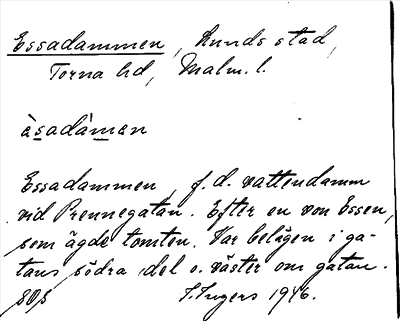 Essadammen, Lunds stad,
Torna hd, Malm. l.
èsadàmen
Essadammen, f.d. vattendamm
vid Prennegatan. Efter en von Essen,
som ägde tomten. Var belägen i ga-
tans södra del o. väster om gatan.
I. Ingers 1946.